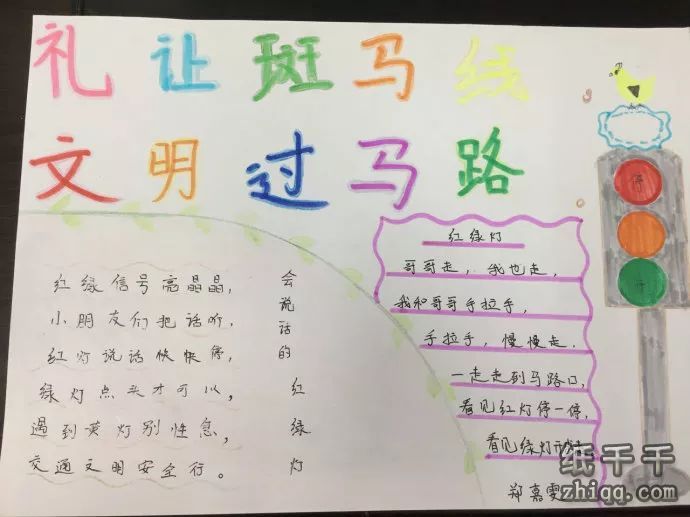 礼让斑马线
文明过马路
红绿信号亮晶晶,
小朋友们把话听,
红灯说话快快停,
绿灯点头才可以,
遇到黄灯别性急,
交通文明安全行。
会说话的红绿灯
红绿灯
哥哥走,我也走,
我和哥哥手拉手,
手拉手,慢慢走,
一走走到马路口,
看见红灯停一停,
看见绿灯
郑嘉雯
停
纸千千
zhiqq.com